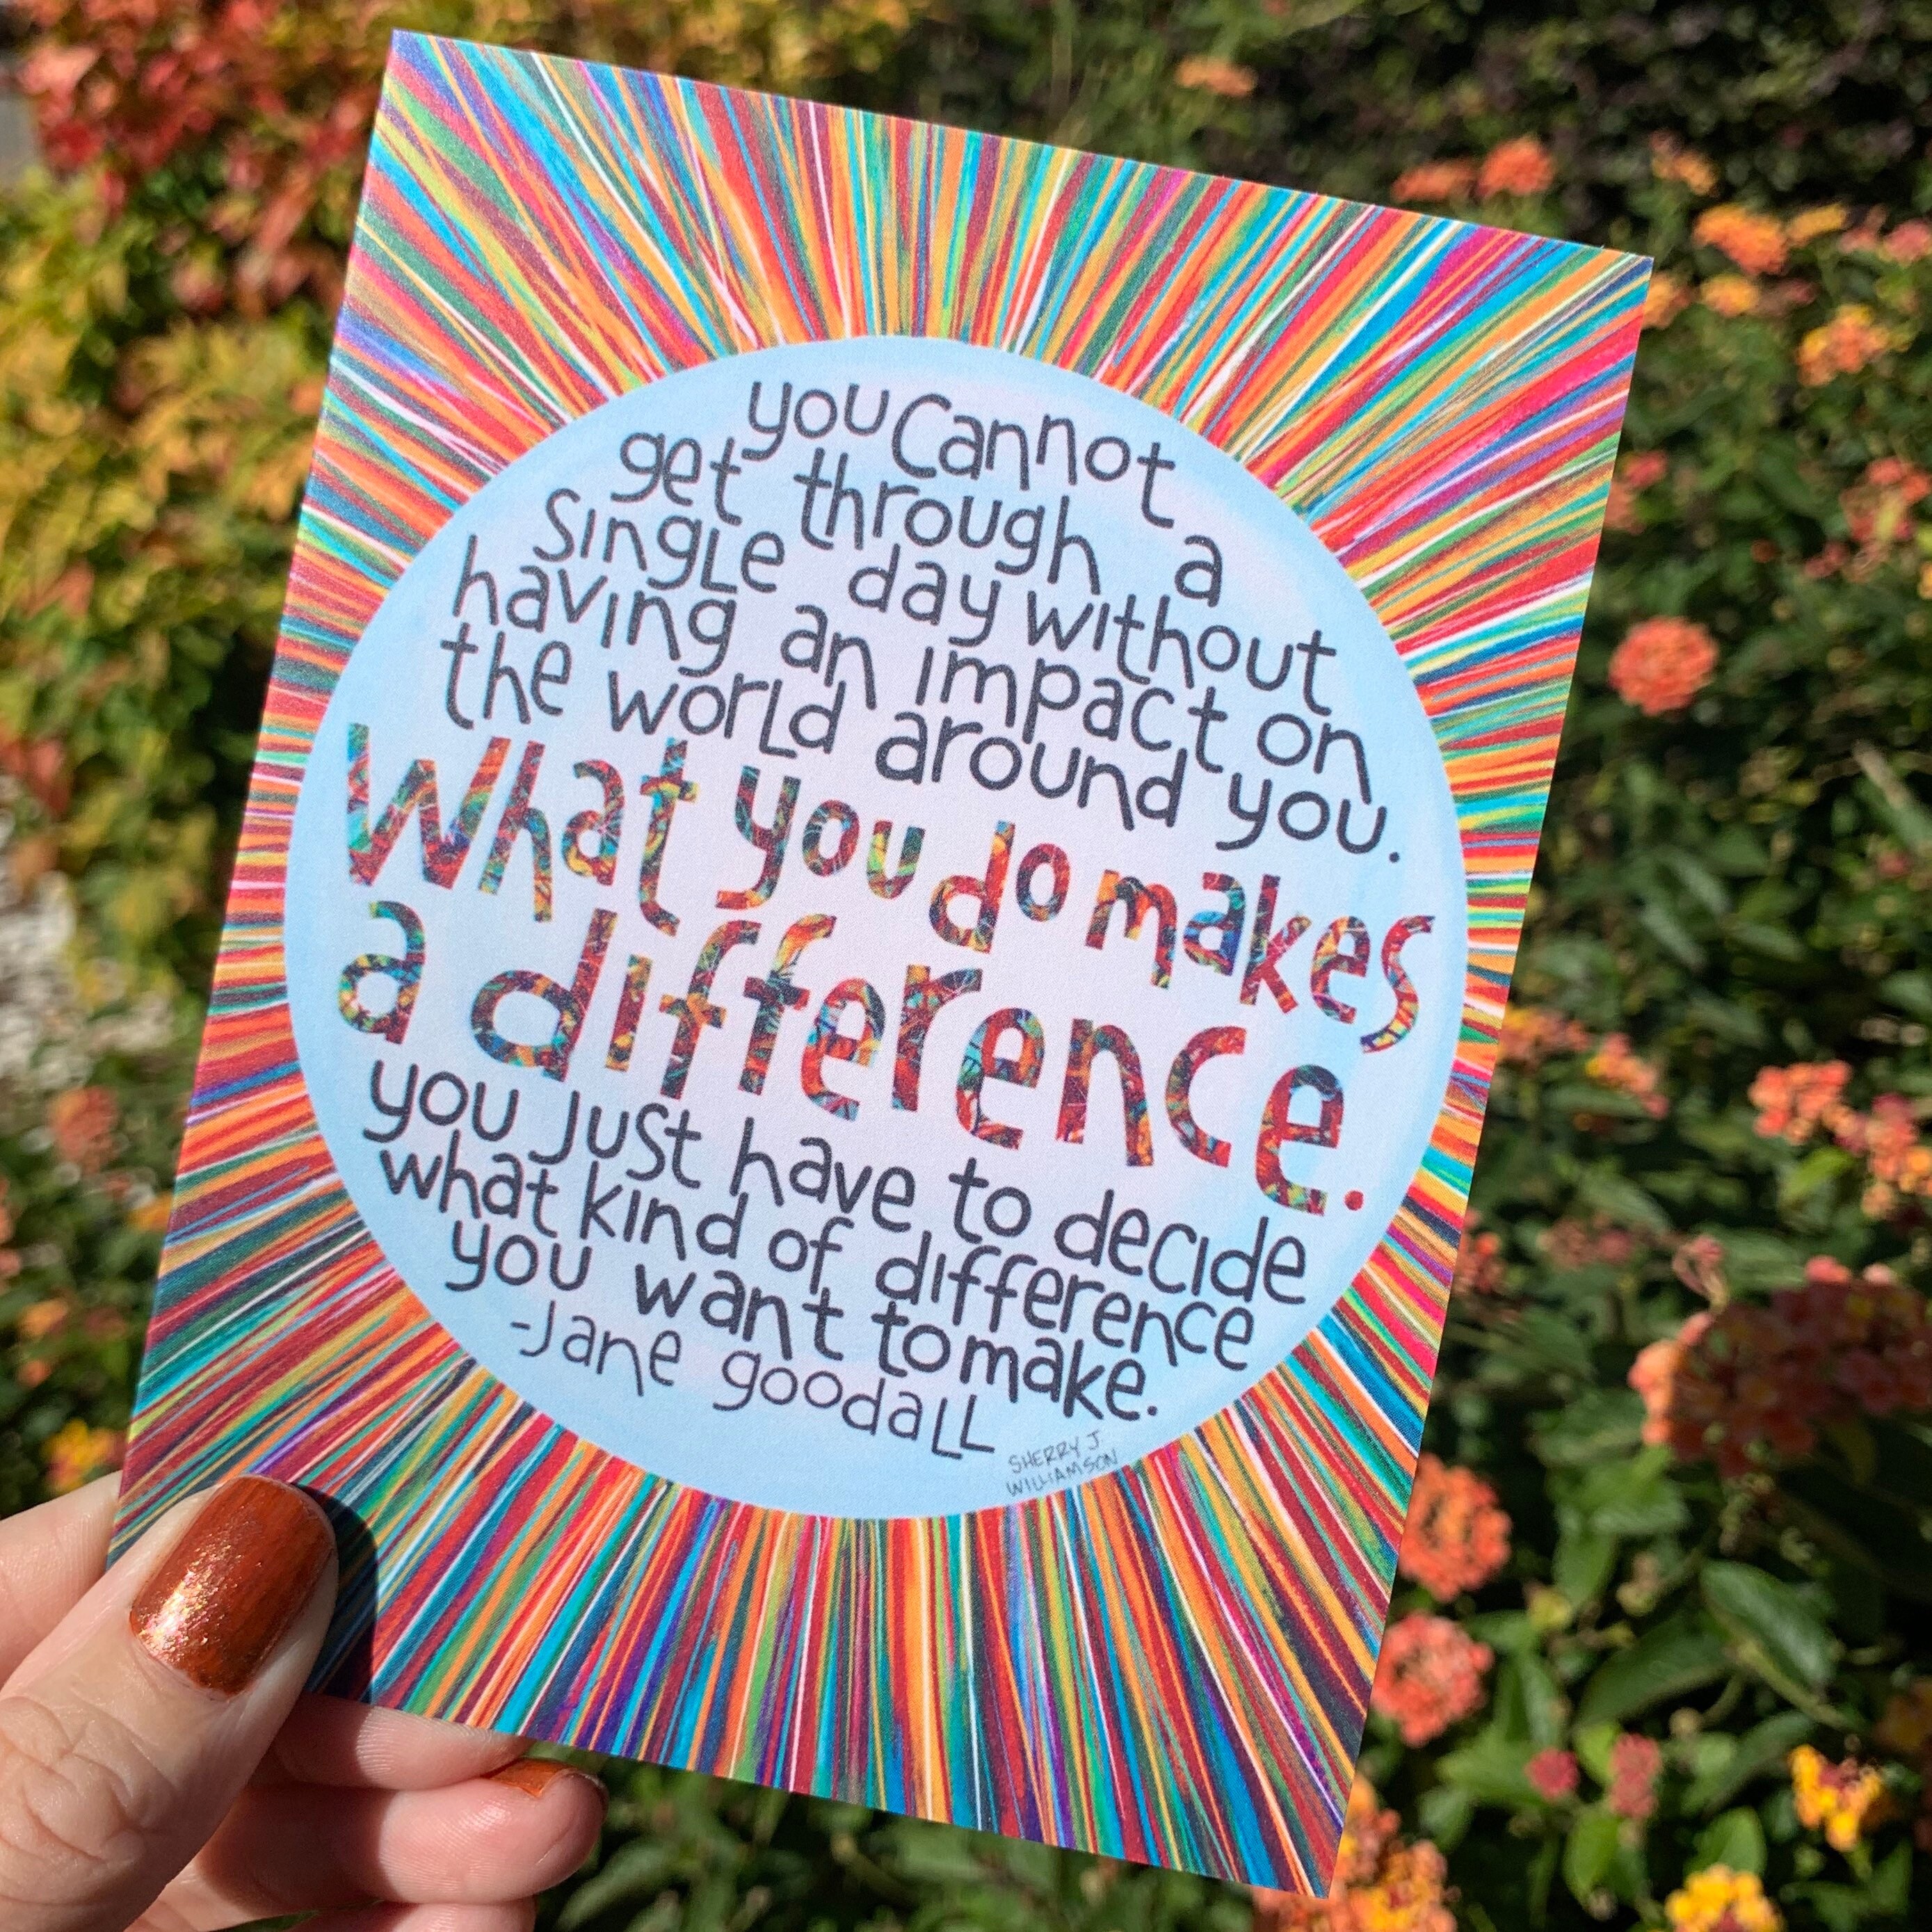 you Cannot
get through a
Single day without
having an impact on
the world around you.
What you do makes
a difference.
you just have to decide
what kind of difference
you want to make.
-Jane goodall
SHERRY J
WILLIAMSON